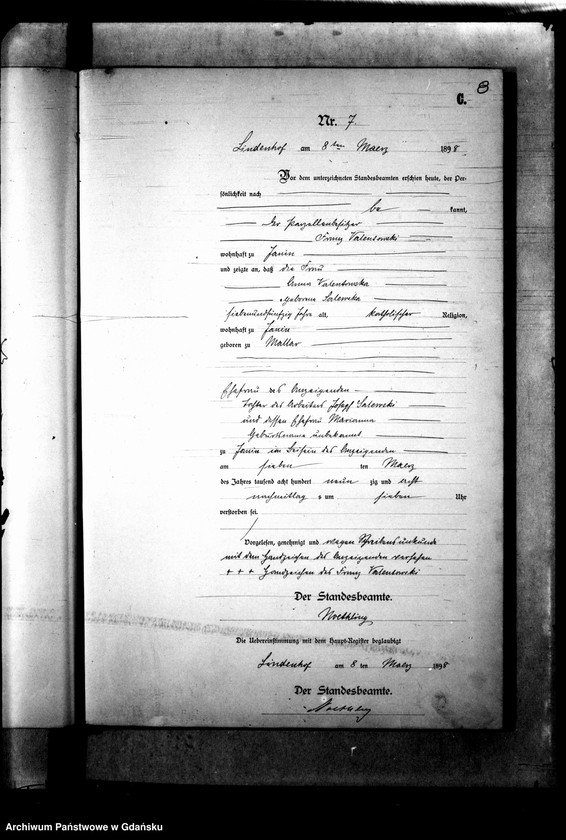 8
C.
Nr. 7.
Lindenhof am 8ten Maerz 1898
Vor dem unterzeichneten Standesbeamten erschien heute, der Per-
sönlichkeit nach
be kannt,
der Parzellenbesitzer
Franz Valentowski
wohnhaft zu Janin
und zeigte an, daß die Frau
Anna Valentowska
geborene Salewska
siebenundfünfzig Jahre alt, katholischer Religion,
wohnhaft zu Janin
geboren zu Mallar
Ehefrau des Anzeigenden
Tochter des Arbeiters Josef Salewski
und dessen Ehefrau Marianna
Geburtsname unbekannt
zu Janin im Beisein des Anzeigenden
am sieben ten Maerz
des Jahres tausend acht hundert neun zig und acht
nachmittag s um sieben Uhr
verstorben sei.
Vorgelesen, genehmigt und wegen Schreibensunkunde
mit dem Handzeichen des Anzeigenden versehen
+ + + Handzeichen des Franz Valentowski
Der Standesbeamte.
Noethling
Die Uebereinstimmung mit dem Haupt-Register beglaubigt
Lindenhof am 8 ten Maerz 1898
Der Standesbeamte.
Noethling
Archiwum Państwowe w Gdańsku